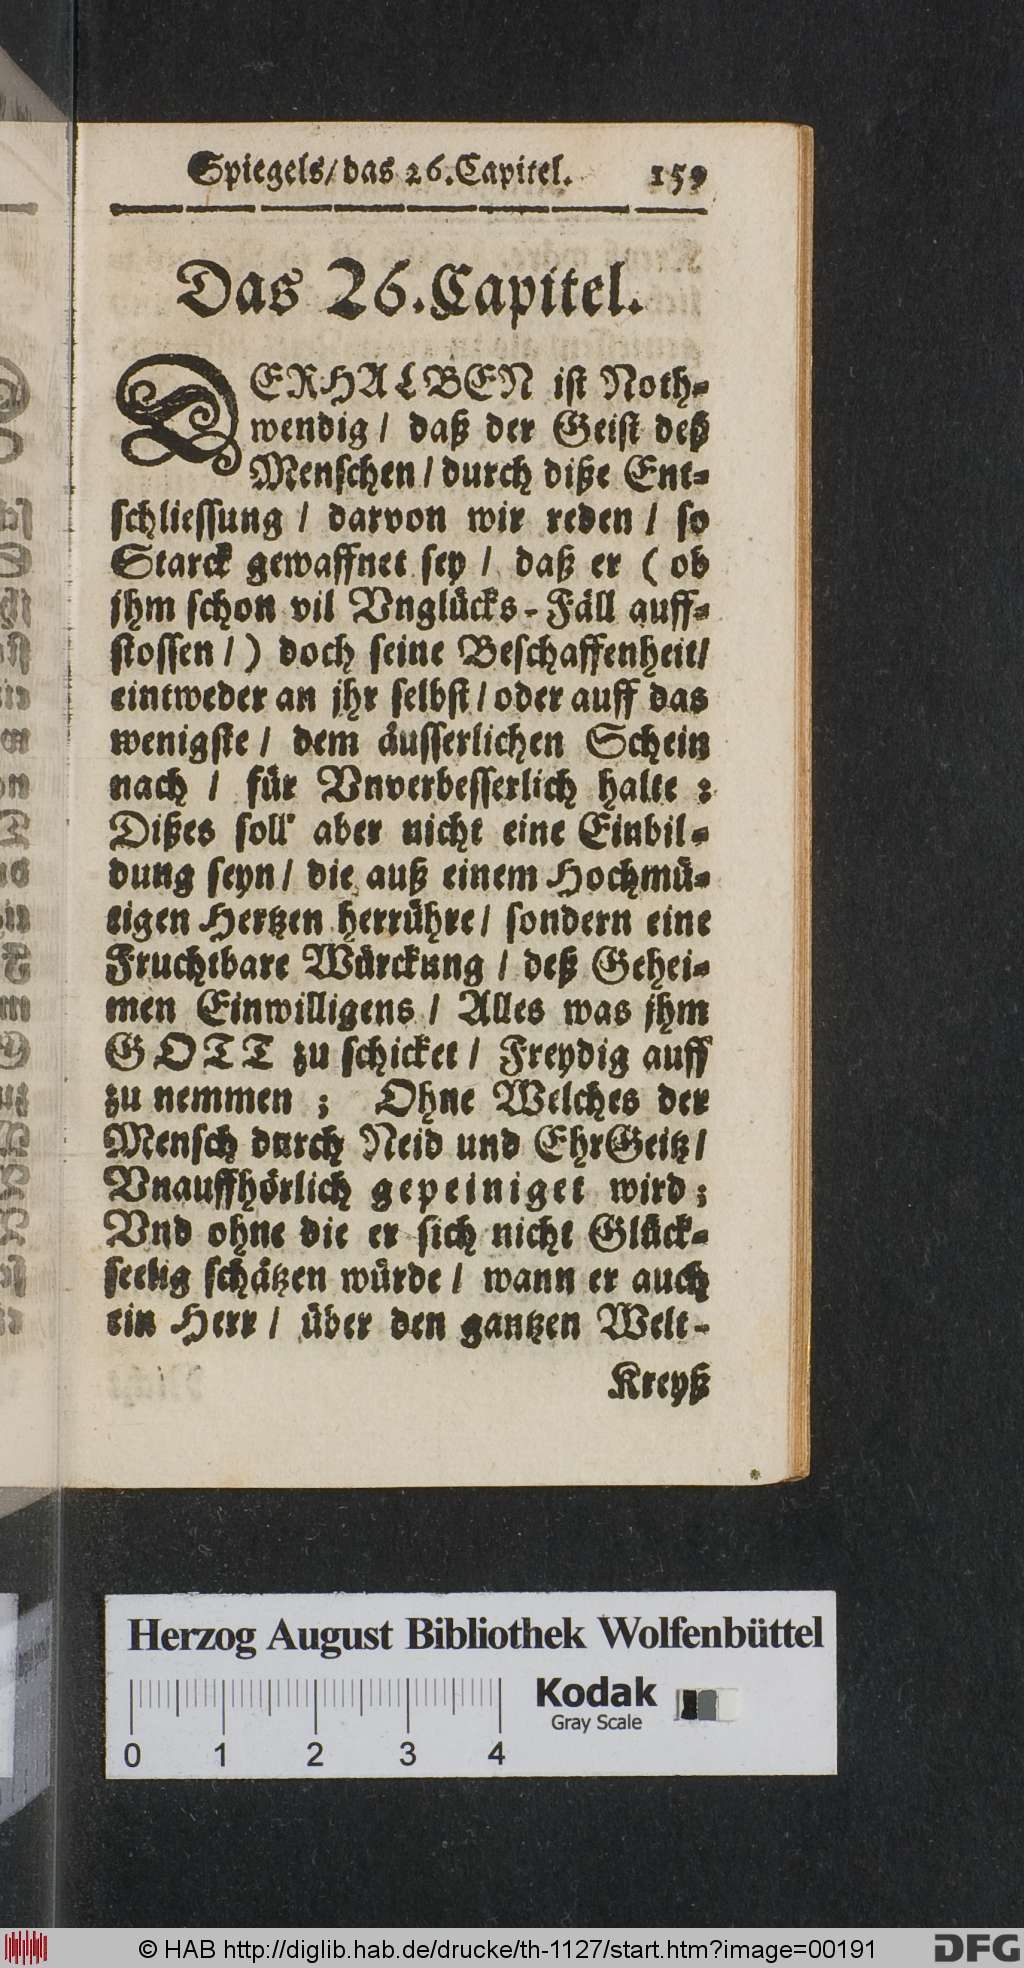 Spiegels/das 26.Capitel. 159
Das 26.Capitel.
DERHALBEN ist Noth-
wendig / daß der Geist deß
Menschen / durch diße Ent-
schliessung / darvon wir reden / so
Starck gewaffnet sey / daß er ( ob
jhm schon vil Vnglücks-Fäll auff-
stossen / ) doch seine Beschaffenheit/
eintweder an jhr selbst / oder auff das
wenigste / dem äusserlichen Schein
nach / für Vnverbesserlich halte :
Dißes soll aber nicht eine Einbil-
dung seyn / die auß einem Hochmü-
tigen Hertzen herrühre / sondern eine
Fruchtbare Würckung / deß Gehei-
men Einwilligens / Alles was jhm
GOTT zu schicket / Freydig auff
zu nemmen ; Ohne Welches der
Mensch durch Neid und EhrGeitz /
Vnauffhörlich gepeiniget wird ;
Vnd ohne die er sich nicht Glück-
seelig schätzen würde / wann er auch
ein Herr / über den gantzen Welt-
Kreyß
Herzog August Bibliothek Wolfenbüttel
0 1 2 3 4
Kodak
Gray Scale
© HAB http://diglib.hab.de/drucke/th-1127/start.htm?image=00191
DFG